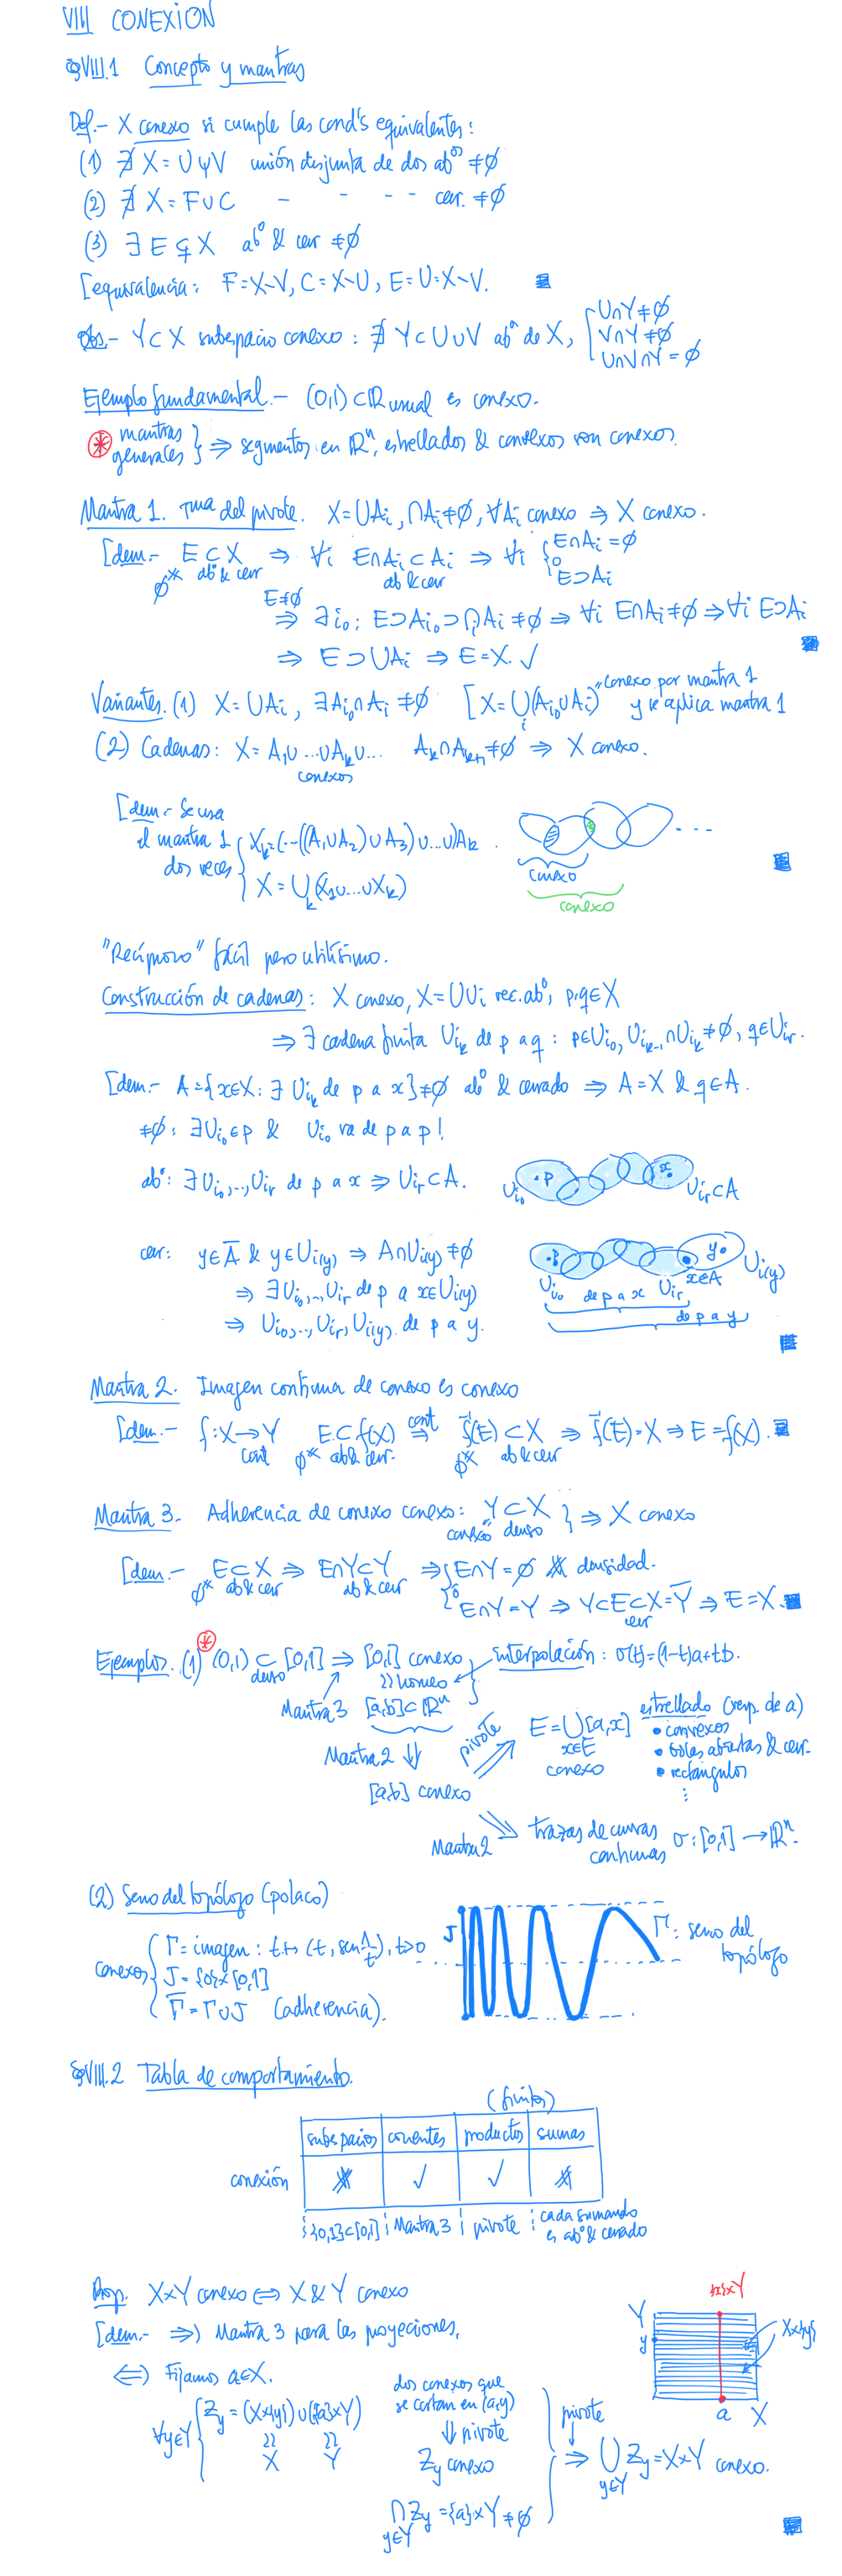 VIII CONEXIÓN
§VIII.1 Concepto y mantras
Def.- X conexo si cumple las cond's equivalentes:
(1) ∄ X = U ∪ V unión disjunta de dos ab° ≠ ∅
(2) ∄ X = F ∪ C - - - - cer. ≠ ∅
(3) ∃ E ⊊ X ab° & cer ≠ ∅
[equivalencia: F = X-V, C = X-U, E = U = X-V.
Obs.- Y ⊂ X subespacio conexo: ∄ Y ⊂ U ∪ V ab° de X, { U∩Y ≠ ∅
V∩Y ≠ ∅
U∩V∩Y = ∅
Ejemplo fundamental.- (0,1) ⊂ ℝ usual es conexo.
⊛ mantras generales } ⇒ segmentos en ℝⁿ, estrellados & convexos son conexos.
Mantra 1. Tma del pivote. X = ∪Ai, ∩Ai ≠ ∅, ∀Ai conexo ⇒ X conexo.
[dem.- E ⊂ X ⇒ ∀i E∩Ai ⊂ Ai ⇒ ∀i { E∩Ai = ∅
∅ ≠ ab° & cer ab & cer o E ⊃ Ai
E≠∅ ⇒ ∃ i₀: E ⊃ Ai₀ ⊃ ∩Ai ≠ ∅ ⇒ ∀i E∩Ai ≠ ∅ ⇒ ∀i E ⊃ Ai
⇒ E ⊃ ∪Ai ⇒ E = X. ✓
Variantes. (1) X = ∪Ai, ∃Ai₀∩Ai ≠ ∅ [X = ∪i (Ai₀ ∪ Ai) conexo por mantra 1
y se aplica mantra 1
(2) Cadenas: X = A₁ ∪ ... ∪ Ak ∪ ... Ak ∩ Ak+1 ≠ ∅ ⇒ X conexo.
conexos
[dem.- Se usa
el mantra 1 { Xk = (...((A₁∪A₂)∪A₃)∪...∪)Ak.
dos veces X = ∪k (X₁∪...∪Xk)
conexo
conexo
"Recíproco" fácil pero utilísimo.
Construcción de cadenas: X conexo, X = ∪Ui rec. ab°, p,q∈X
⇒ ∃ cadena finita Uik de p a q: p∈Ui₀, Uik-1 ∩ Uik ≠ ∅, q∈Uir.
[dem.- A = {x∈X: ∃ Uik de p a x} ≠ ∅ ab° & cerrado ⇒ A = X & q∈A.
≠∅: ∃Ui₀∋p & Ui₀ va de p a p!
ab°: ∃Ui₀,...,Uir de p a x ⇒ Uir ⊂ A.
Ui₀ p x Uir ⊂ A
cer: y∈A̅ & y∈Ui(y) ⇒ A∩Ui(y) ≠ ∅
⇒ ∃Ui₀,..,Uir de p a x∈Ui(y)
⇒ Ui₀,..,Uir,Ui(y) de p a y.
p y Ui(y)
Ui₀ de p a x Uir x∈A
de p a y
Mantra 2. Imagen continua de conexo es conexo
[dem.- f: X → Y E ⊂ f(X) cont ⇒ f⁻¹(E) ⊂ X ⇒ f⁻¹(E) = X ⇒ E = f(X).
cont ∅ ≠ ab & cer. ∅ ≠ ab & cer
Mantra 3. Adherencia de conexo conexo: Y ⊂ X } ⇒ X conexo
conexo denso
[dem.- E ⊂ X ⇒ E∩Y ⊂ Y ⇒ { E∩Y = ∅ # densidad.
∅ ≠ ab & cer ab & cer o E∩Y = Y ⇒ Y ⊂ E ⊂ X = Y̅ ⇒ E = X.
cer
Ejemplos. (1) ⊛ (0,1) ⊂ [0,1] ⇒ [0,1] conexo interpolación: σ(t) = (1-t)a + tb.
denso ≀≀ homeo
Mantra 3 [a,b] ⊂ ℝⁿ
Mantra 2 ⇓
[a,b] conexo
pivote
E = ∪ [a,x]
x∈E
conexo
estrellado (resp. de a)
• convexos
• bolas abiertas & cerr.
• rectángulos
⋮
Mantra 2 trazas de curvas continuas σ: [0,1] → ℝⁿ.
(2) Seno del topólogo (polaco)
conexos { Γ = imagen: t ↦ (t, sen 1/t), t>0
J = {0}×[0,1]
Γ̅ = Γ∪J (adherencia).
J
Γ: seno del topólogo
§VIII.2 Tabla de comportamiento.
(finitos)
subespacios cocientes productos sumas
conexión ✓ ✓
{0,1}⊂[0,1] Mantra 3 pivote cada sumando
es ab° & cerrado
Prop. X×Y conexo ⇔ X & Y conexo
[dem.- ⇒) Mantra 3 para las proyecciones.
⇐) Fijamos a∈X.
∀y∈Y { Zy = (X×{y}) ∪ ({a}×Y)
≀≀ ≀≀
X Y
dos conexos que
se cortan en (a,y)
⇓ pivote
Zy conexo
∩ Zy = {a}×Y ≠ ∅
y∈Y
pivote
⇒ ∪ Zy = X×Y conexo.
y∈Y
{a}×Y
Y
y
X×{y}
a X